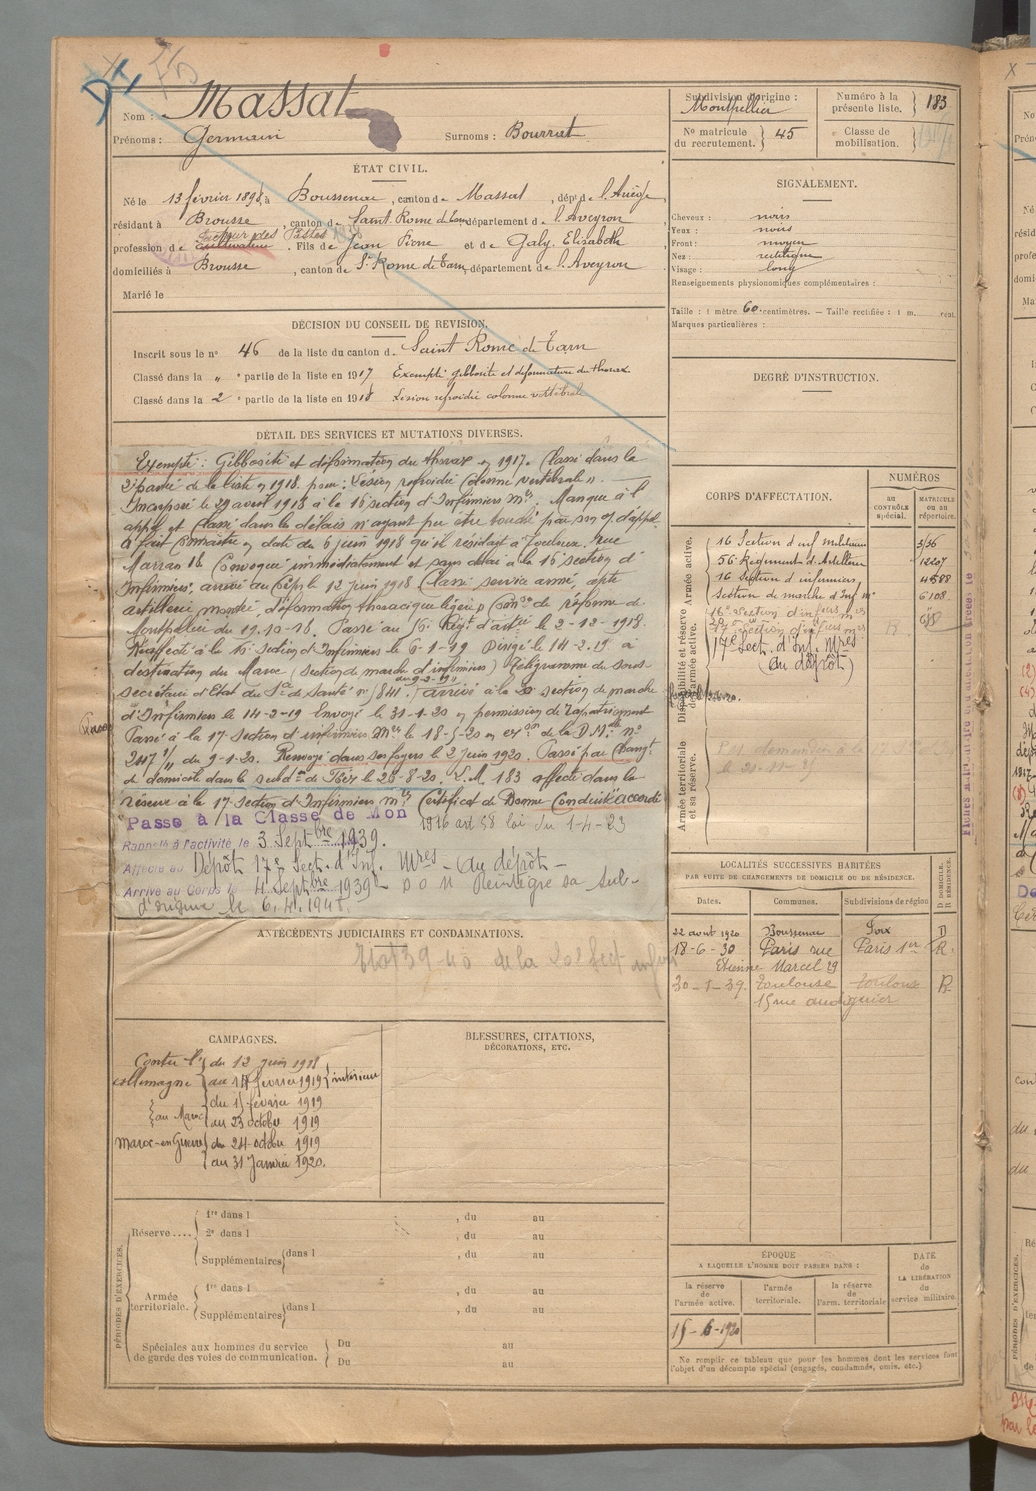 Nom : Massat
Prénoms : Germain Surnoms : Bourrut
Subdivision d'origine : Montpellier
Numéro à la présente liste. } 183
N° matricule du recrutement. } 45
Classe de mobilisation.
ÉTAT CIVIL.
Né le 13 février 1898, à Boussenac, canton de Massat, dépt de l'Ariège
résidant à Brousse, canton de Saint Rome de Tarn, département de l'Aveyron
profession de cultivateur. Fils de Jean Pierre et de Galy Elisabeth
domiciliés à Brousse, canton de St Rome de Tarn, département de l'Aveyron
Marié le
SIGNALEMENT.
Cheveux : noirs
Yeux : noirs
Front : moyen
Nez : rectiligne
Visage : long
Renseignements physionomiques complémentaires :
Taille : 1 mètre 60 centimètres. — Taille rectifiée : 1 m. cent.
Marques particulières :
DÉCISION DU CONSEIL DE REVISION.
Inscrit sous le n° 46 de la liste du canton de Saint Rome de Tarn
Classé dans la " e partie de la liste en 1917 Exempté gibbosité et déformation du thorax
Classé dans la 2 e partie de la liste en 1918 Lésion refroidie colonne vertébrale
DEGRÉ D'INSTRUCTION.
DÉTAIL DES SERVICES ET MUTATIONS DIVERSES.
Exempté : Gibbosité et déformation du thorax en 1917. Classé dans la
2e partie de la liste en 1918 pour : Lésion refroidie colonne vertébrale ".
Incorporé le 29 avril 1918 à la 16 section d'Infirmiers mres. Manque à l'
appel et classé dans le délais n'ayant pu être touché par son o. d'appel.
a fait connaitre en date du 6 juin 1918 qu'il résidait à Toulouse, rue
Marrao 18. Convoqué immédiatement et sans délai à la 16 section d'
Infirmiers, arrivé au Corps le 12 juin 1918 Classé service armé, apte
artillerie montée, déformation thoracique légère, Con on de réforme de
Montpellier du 19.10-18. Passé au 56 Régt d'artie le 2-12-1918.
Réaffecté à la 16 section d'Infirmiers le 6-1-19 Dirigé le 14-2-19 à
destination du Maroc (section de marche d'infirmiers) Télégramme du sous-
secrétaire d'Etat du Sce de Santé n° 1841. arrivé à la section de marche
d'Infirmiers le 14-2-19 Envoyé le 31-1-20 en permission de rapatriement
Passé à la 17 section d'infirmiers Mres le 18-5-20 en exon de la D.M. n°
2417 1/7 du 9-1-20. Renvoyé dans ses foyers le 2 juin 1920. Passé par changt
de domicile dans la subdon de Foix le 28-8-20. L.M. 183 affecté dans la
réserve à la 17 section d'Infirmiers mres Certificat de Bonne Conduite "accordé"
Passé à la Classe de Mon 1916 art 58 loi du 1-4-23
Rappelé à l'activité le 3 Septbre 1939.
Affecté au Dépôt 17e Sect. d'Inf. Mres - au dépôt -
Arrivé au Corps le 4 Septbre 1939
Réintègre sa sub-
d'origine le 6.4.1941
CORPS D'AFFECTATION.
NUMÉROS
AU CONTRÔLE spécial.
MATRICULE OU AU répertoire.
Armée active.
16 Section d'inf militaires 3/36
56 Régiment d'Artillerie 12207
16 Section d'infirmiers 4588
Section de marche d'Inf m 6108
Disponibilité et réserve de l'armée active.
16e Section d'infirm mres
17e Section d'infirm mres
17e Sect. d'Inf. Mres
(au dépôt)
Armée territoriale et sa réserve.
LOCALITÉS SUCCESSIVES HABITÉES
PAR SUITE DE CHANGEMENTS DE DOMICILE OU DE RÉSIDENCE.
Dates. Communes. Subdivisions de région D DOMICILE. R RÉSIDENCE.
22 avril 1920 Boussenac Foix D
18-6-30 Paris rue Paris 1er R.
Etienne Marcel 29
30-1-39. Toulouse Toulouse R.
15 rue audiguier
ANTÉCÉDENTS JUDICIAIRES ET CONDAMNATIONS.
CAMPAGNES.
Contre l' { du 12 juin 1918
allemagne { au 14 février 1919 } intérieur
{ du 15 février 1919
au Maroc { au 23 octobre 1919
Maroc-en Guerre { du 24 octobre 1919
{ au 31 Janvier 1920.
BLESSURES, CITATIONS,
DÉCORATIONS, ETC.
PÉRIODES D'EXERCICES.
Réserve .... { 1re dans l , du au
2e dans l , du au
Supplémentaires { dans l , du au
Armée territoriale. { 1re dans l , du au
Supplémentaires { dans l , du au
Spéciales aux hommes du service de garde des voies de communication. { Du au
Du au
ÉPOQUE
A LAQUELLE L'HOMME DOIT PASSER DANS :
la réserve de l'armée active.
l'armée territoriale.
la réserve de l'arm. territoriale
DATE de LA LIBÉRATION du service militaire.
15-6-1920
Ne remplir ce tableau que pour les hommes dont les services font
l'objet d'un décompte spécial (engagés, condamnés, omis, etc.)